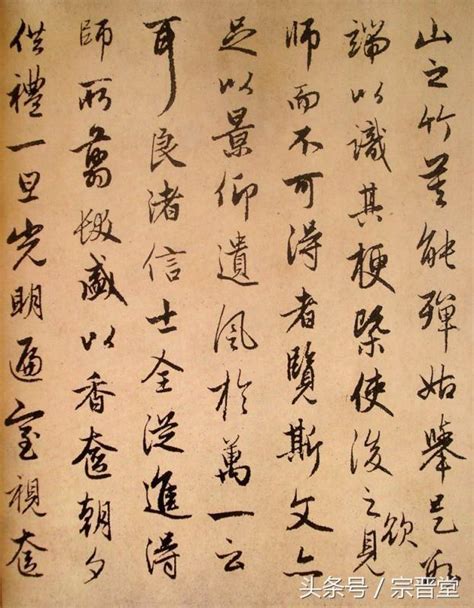 山之竹莫能殫姑舉是數
端以識其梗槩使後之欲見
師而不可得者覽斯文亦
足以景仰遺風於萬一云
耳良渚信士全從進得
師所剪髮盛以香奩朝夕
供禮一旦光明遍室視奩
头条号／宗晋堂